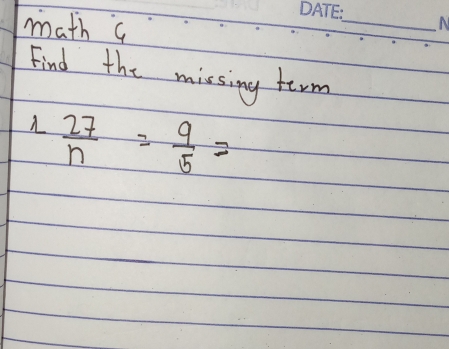 DATE:
math 4
Find the missing term
1 27/n = 9/5 =